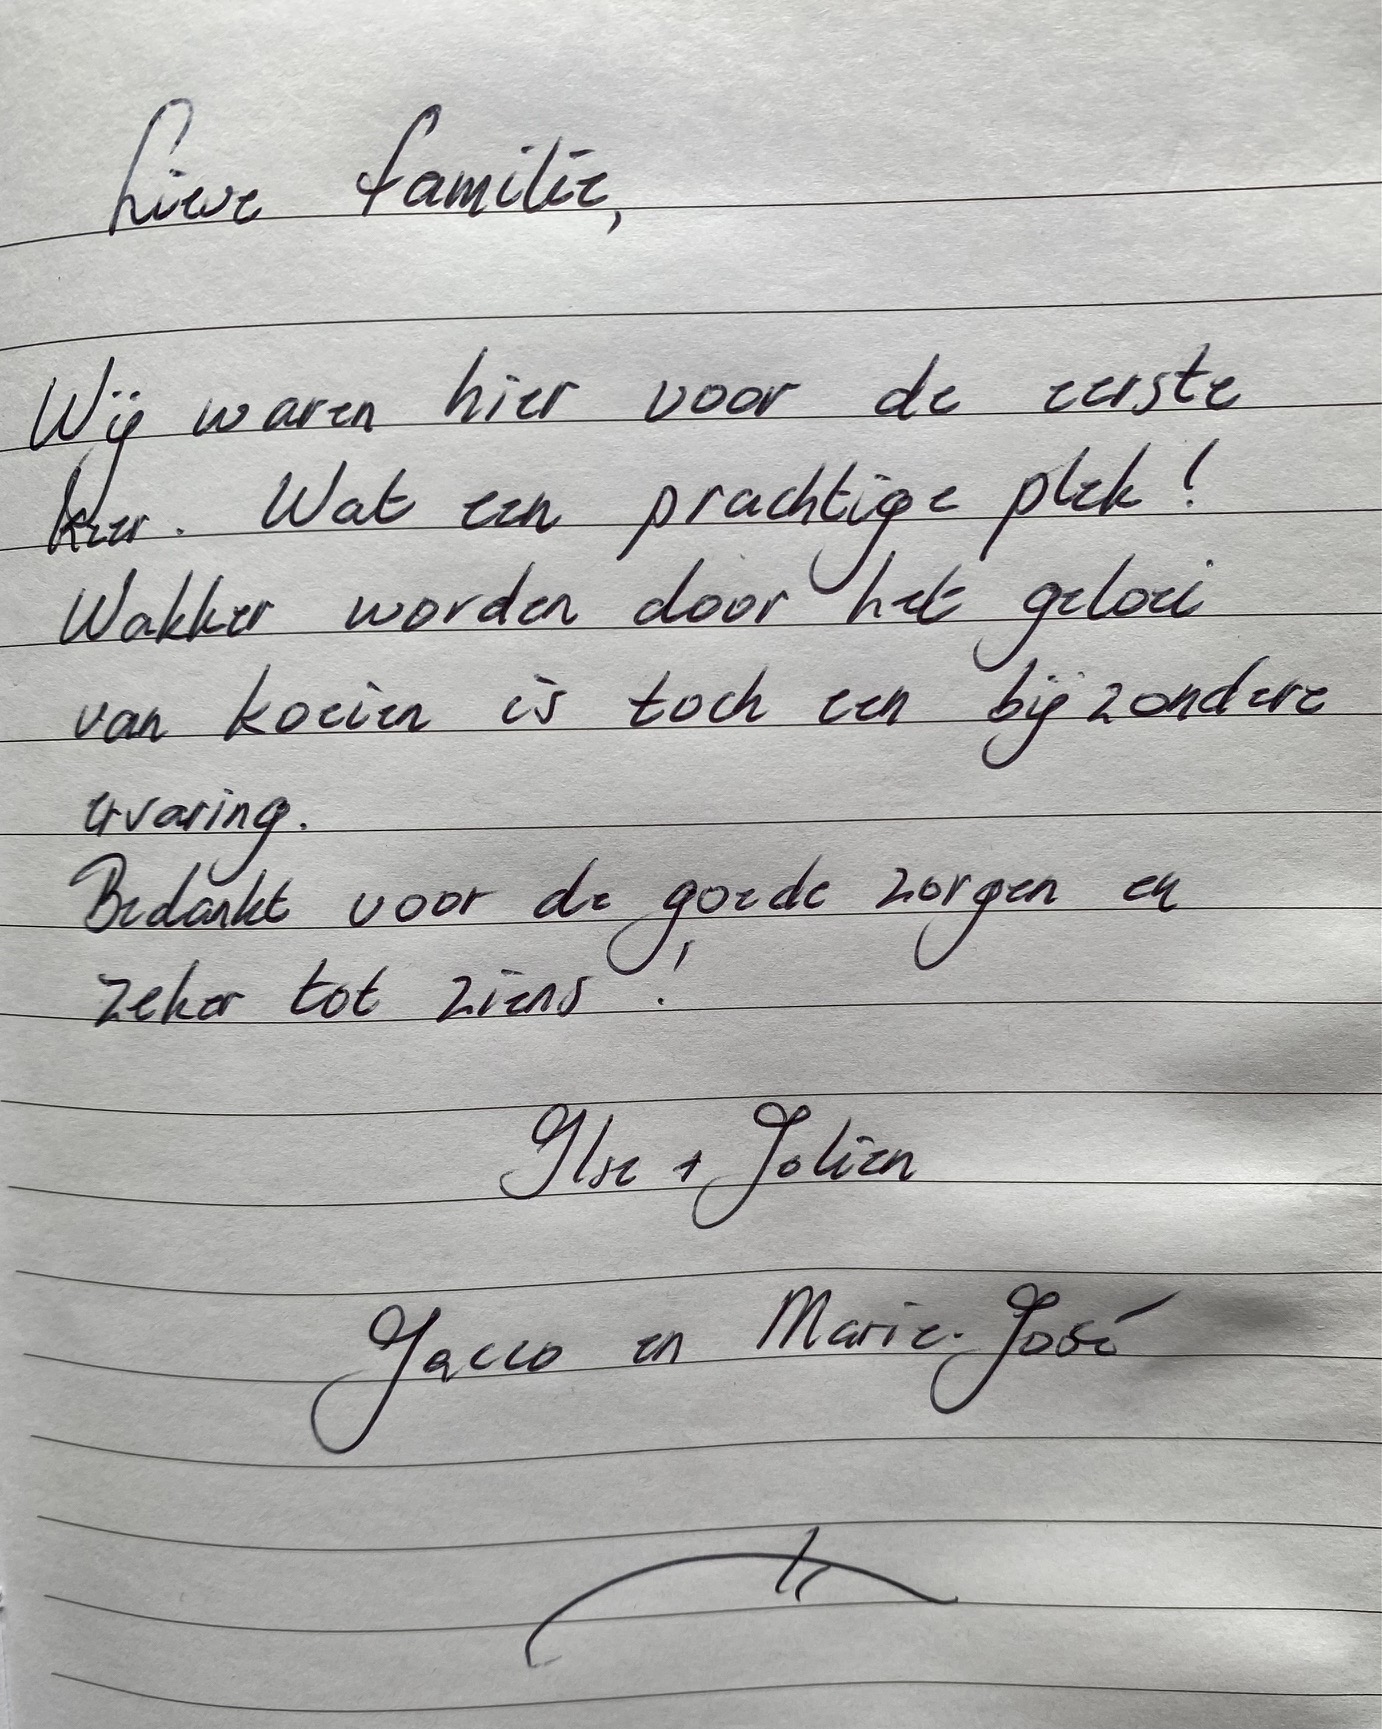 Lieve familie,
Wij waren hier voor de eerste
keer. Wat een prachtige plek!
Wakker worden door het geloei
van koeien is toch een bijzondere
ervaring.
Bedankt voor de goede zorgen en
zeker tot ziens!
Ilse + Jolien
Jacco en Marie-José